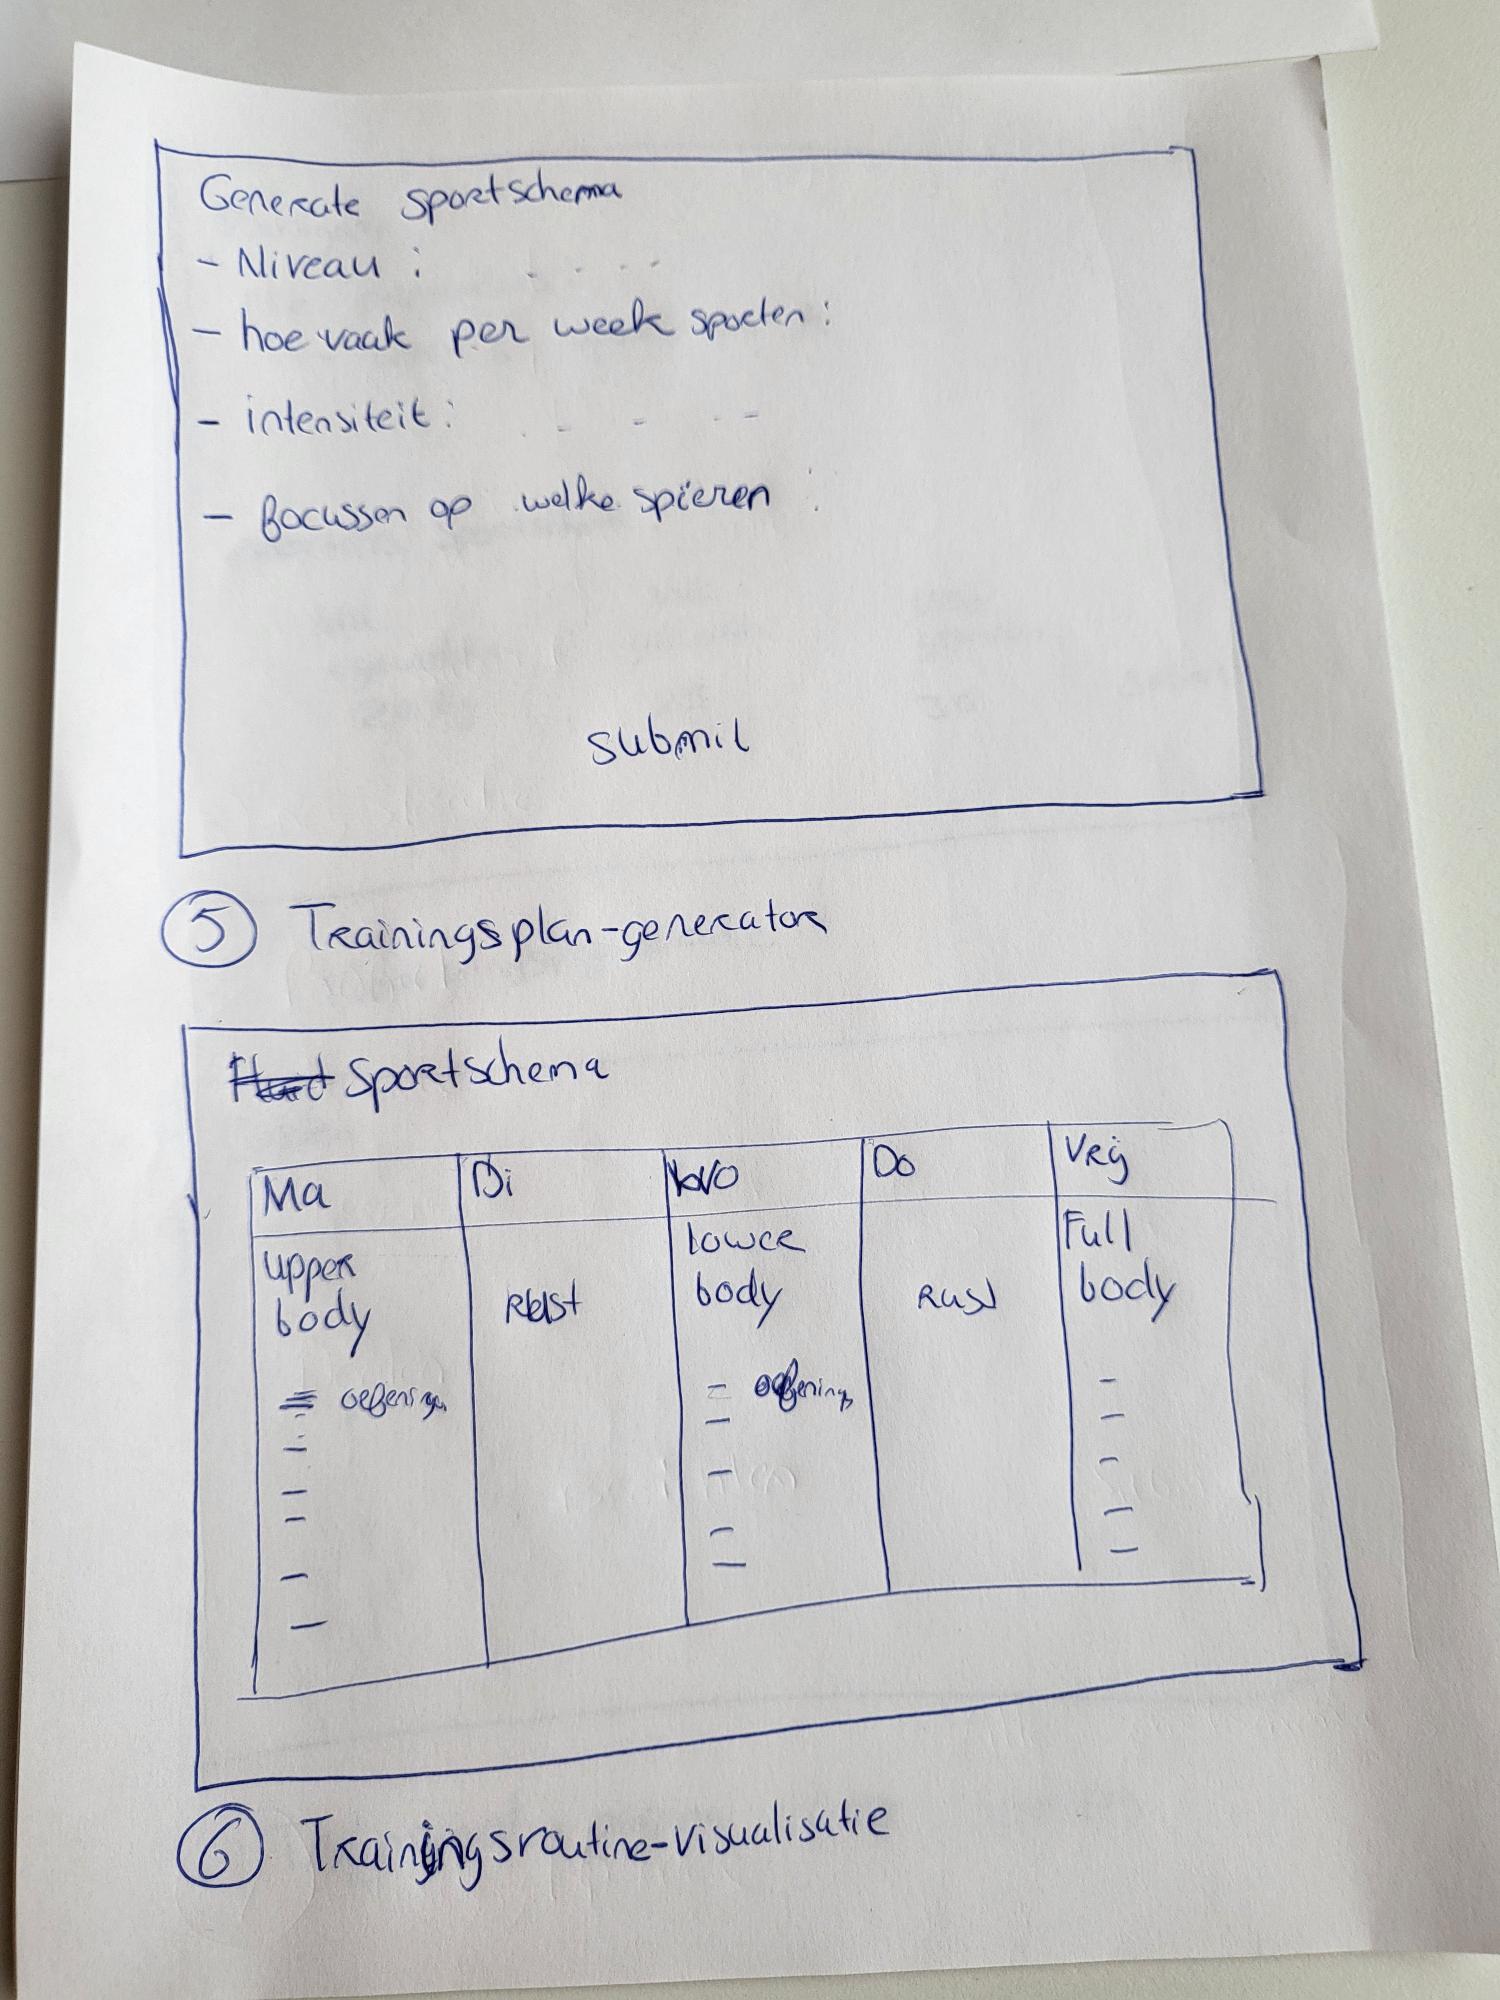 Generate sportschema
- Niveau :
- hoe vaak per week sporten :
- intensiteit :
- focussen op welke spieren :
submit
5 Trainingsplan-generator
Sportschema
Ma Di Wo Do Vrij
upper body
Rust
lower body
Rust
Full body
- oefeningen
- oefening
6 Trainingsroutine-visualisatie